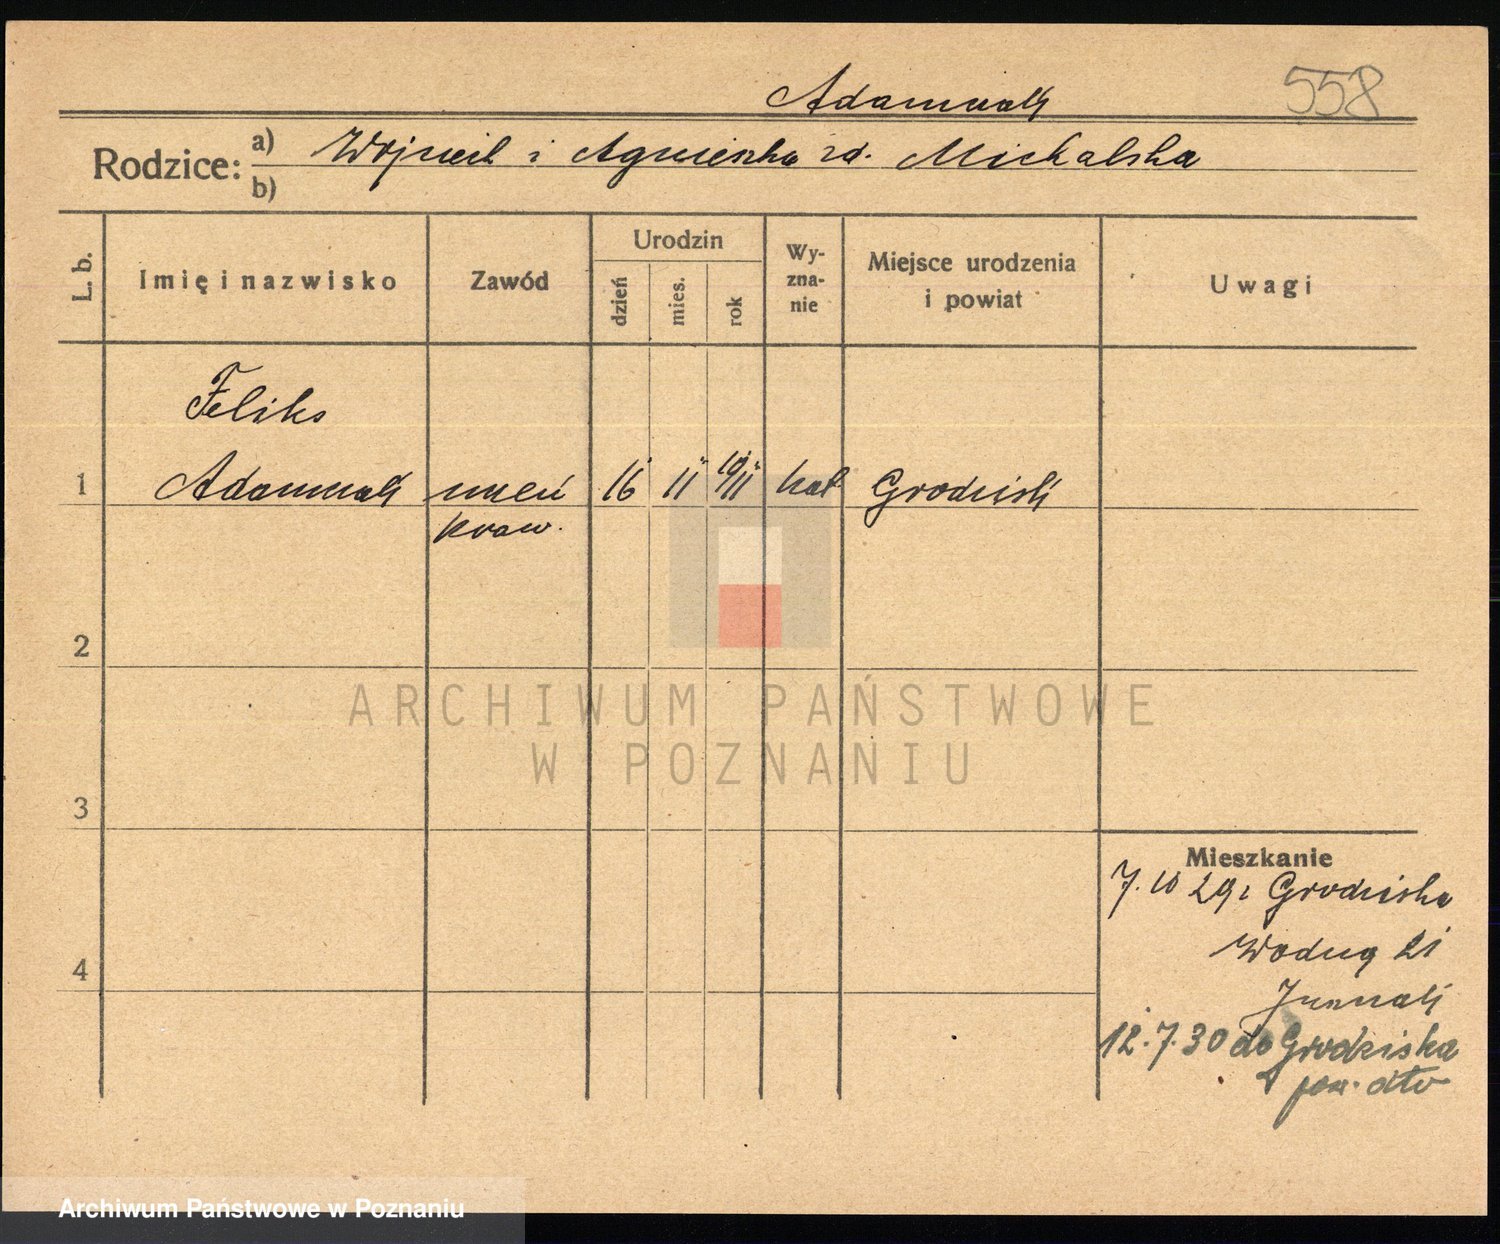 Adamczak 558
Rodzice: a) Wojciech i Agnieszka zd. Michalska
b)
L. b. Imię i nazwisko Zawód Urodzin dzień mies. rok Wy-zna-nie Miejsce urodzenia i powiat Uwagi
Feliks
1 Adamczak uczeń 16 11 1911 kat Grodzisk
kraw.
2
3
4
Mieszkanie
7. 10 29 z Grodziska
Wodną 21
12. 7. 30 do Grodziska
pow. dto
ARCHIWUM PAŃSTWOWE
W POZNANIU
Archiwum Państwowe w Poznaniu